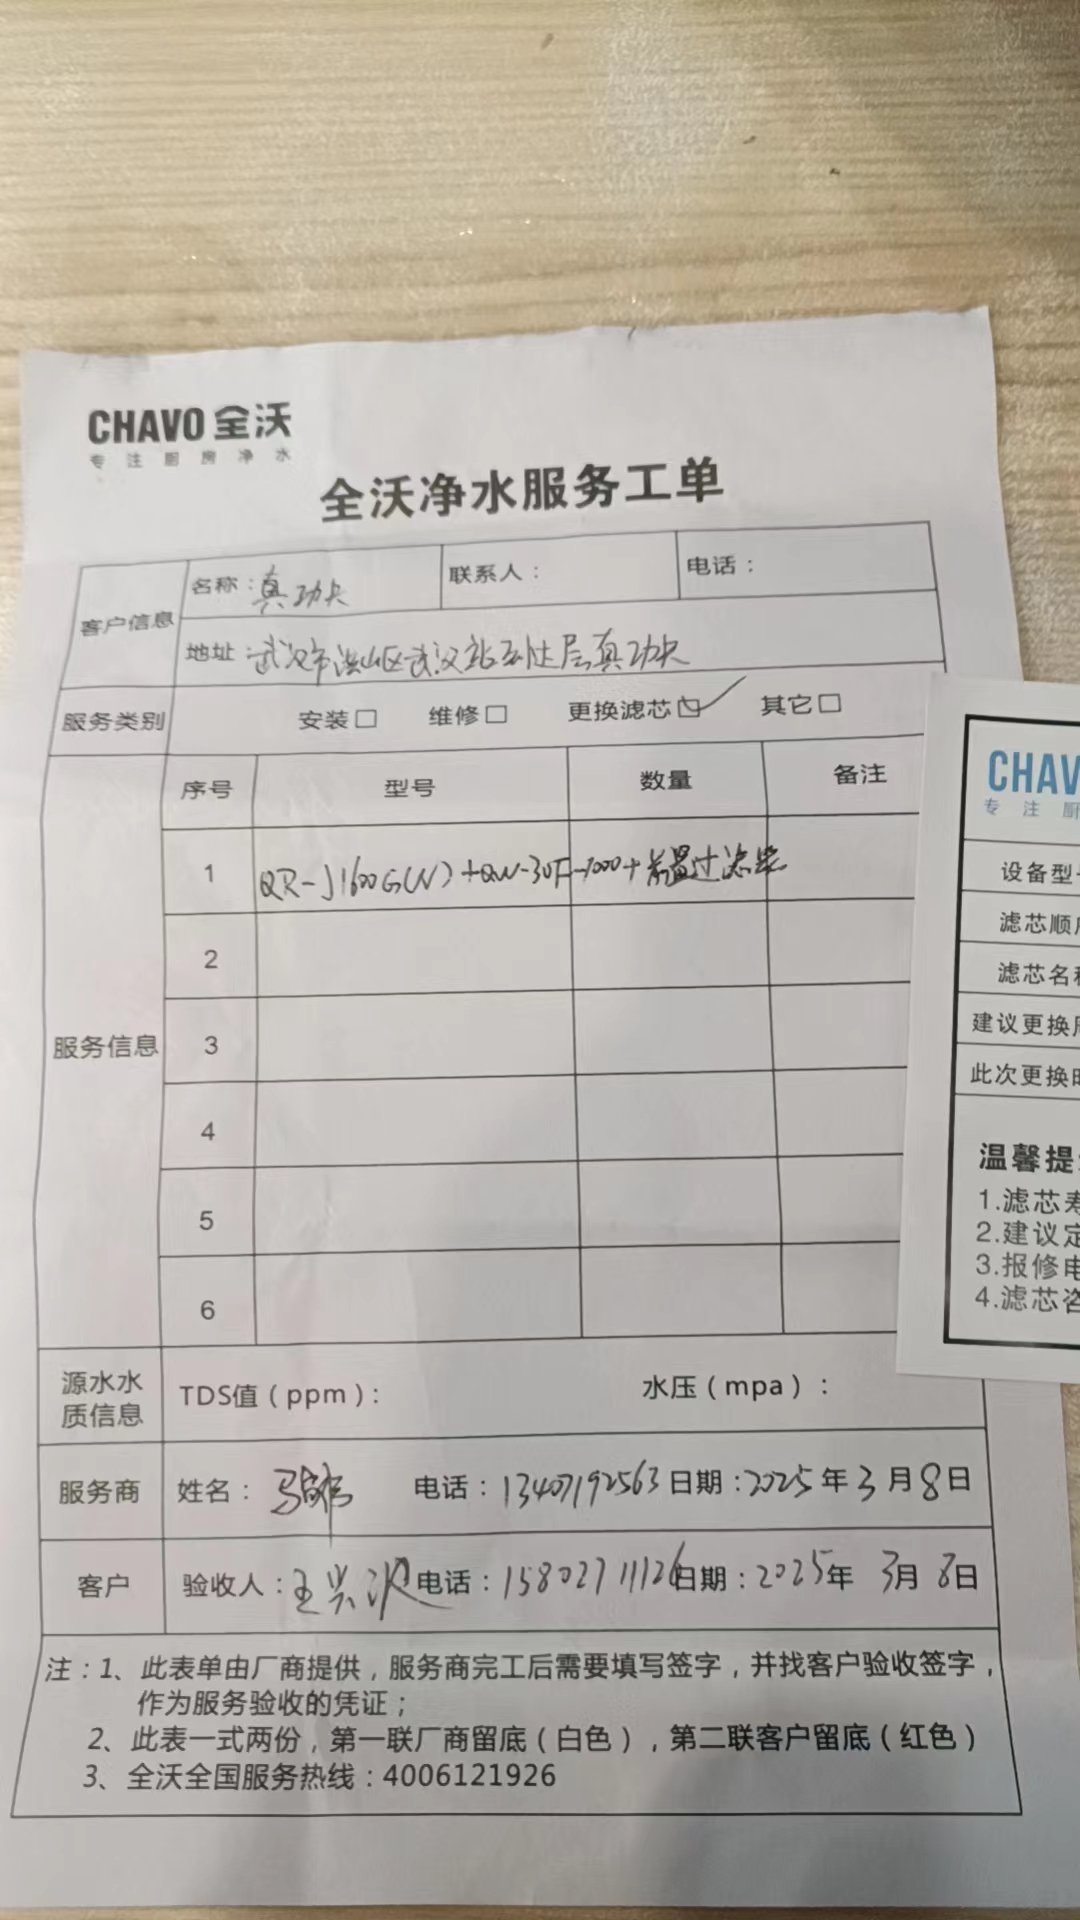 CHAVO 全沃
专注厨房净水
全沃净水服务工单
客户信息
名称：真功夫 联系人： 电话：
地址 武汉市洪山区武汉站 层真功夫
服务类别 安装□ 维修□ 更换滤芯☑ 其它□
服务信息
序号 型号 数量 备注
1 QR-J1600G(N)+QW-30F-1000+ 过滤
2
3
4
5
6
源水水质信息 TDS值（ppm）： 水压（mpa）：
服务商 姓名：马 电话：13407192563 日期：2025年3月8日
客户 验收人：王兴 电话：15802711126 日期：2025年3月8日
注：1、此表单由厂商提供，服务商完工后需要填写签字，并找客户验收签字，
作为服务验收的凭证；
2、此表一式两份，第一联厂商留底（白色），第二联客户留底（红色）
3、全沃全国服务热线：4006121926
CHAV
专注厨
设备型
滤芯顺
滤芯名
建议更换
此次更换
温馨提
1.滤芯寿
2.建议定
3.报修电
4.滤芯咨